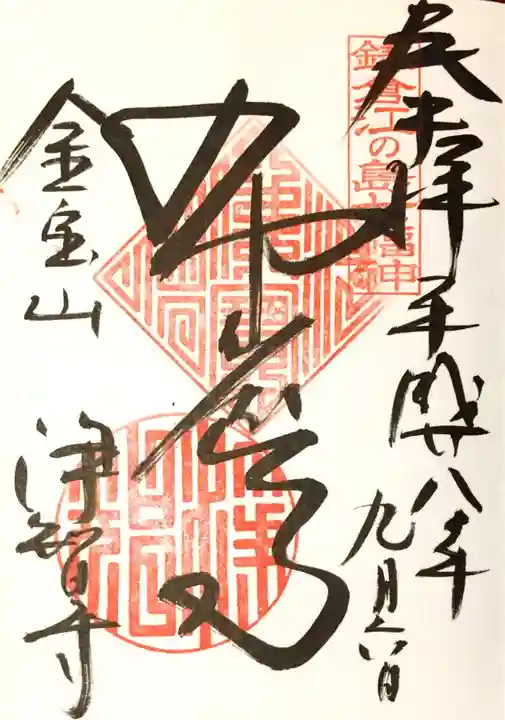 奉拝 平成廿八年
九月六日
鎌倉江の島七福神
布袋尊
金宝山 浄智寺